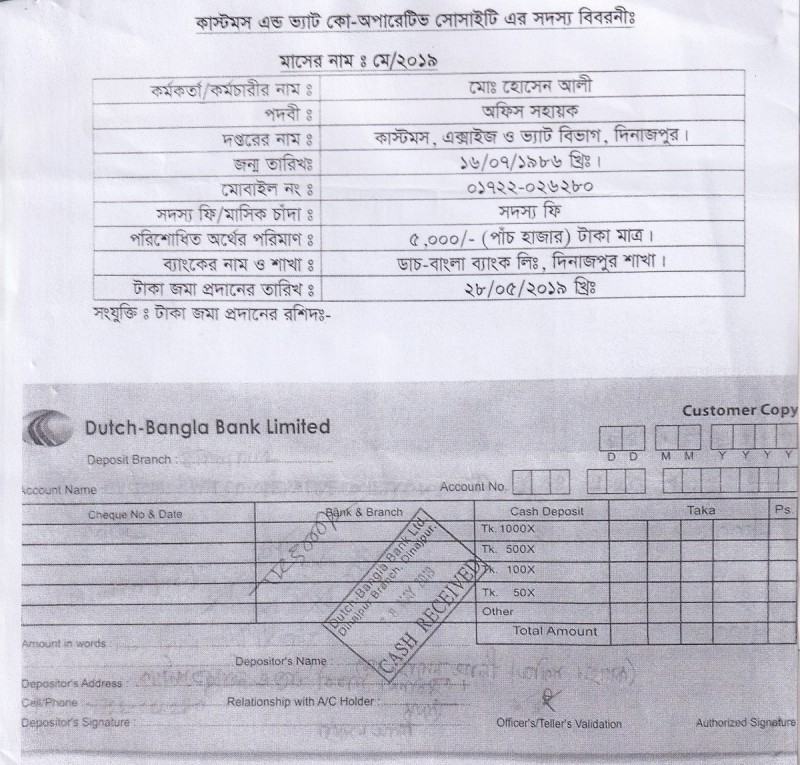 কাস্টমস এন্ড ভ্যাট কো-অপারেটিভ সোসাইটি এর সদস্য বিবরনীঃ
মাসের নাম ঃ মে/২০১৯
কর্মকর্তা/কর্মচারীর নাম ঃ মোঃ হোসেন আলী
পদবী ঃ অফিস সহায়ক
দপ্তরের নাম ঃ কাস্টমস, এক্সাইজ ও ভ্যাট বিভাগ, দিনাজপুর।
জন্ম তারিখঃ ১৬/০৭/১৯৮৬ খ্রিঃ।
মোবাইল নং ঃ ০১৭২২-০২৬২৮০
সদস্য ফি/মাসিক চাঁদা ঃ সদস্য ফি
পরিশোধিত অর্থের পরিমাণ ঃ ৫,০০০/- (পাঁচ হাজার) টাকা মাত্র।
ব্যাংকের নাম ও শাখা ঃ ডাচ-বাংলা ব্যাংক লিঃ, দিনাজপুর শাখা।
টাকা জমা প্রদানের তারিখ ঃ ২৮/০৫/২০১৯ খ্রিঃ
সংযুক্তি ঃ টাকা জমা প্রদানের রশিদঃ-
Customer Copy
Dutch-Bangla Bank Limited
Deposit Branch : D D M M Y Y Y Y
Account Name Account No.
Cheque No & Date Bank & Branch Cash Deposit Taka Ps.
Tk. 1000X
Tk. 500X
Tk. 100X
Tk. 50X
Other
Total Amount
Dutch-Bangla Bank Ltd.
Dinajpur Branch, Dinajpur.
CASH RECEIVED
Amount in words :
Depositor's Name :
Depositor's Address :
Cell/Phone : Relationship with A/C Holder :
Depositor's Signature : Officer's/Teller's Validation Authorized Signature